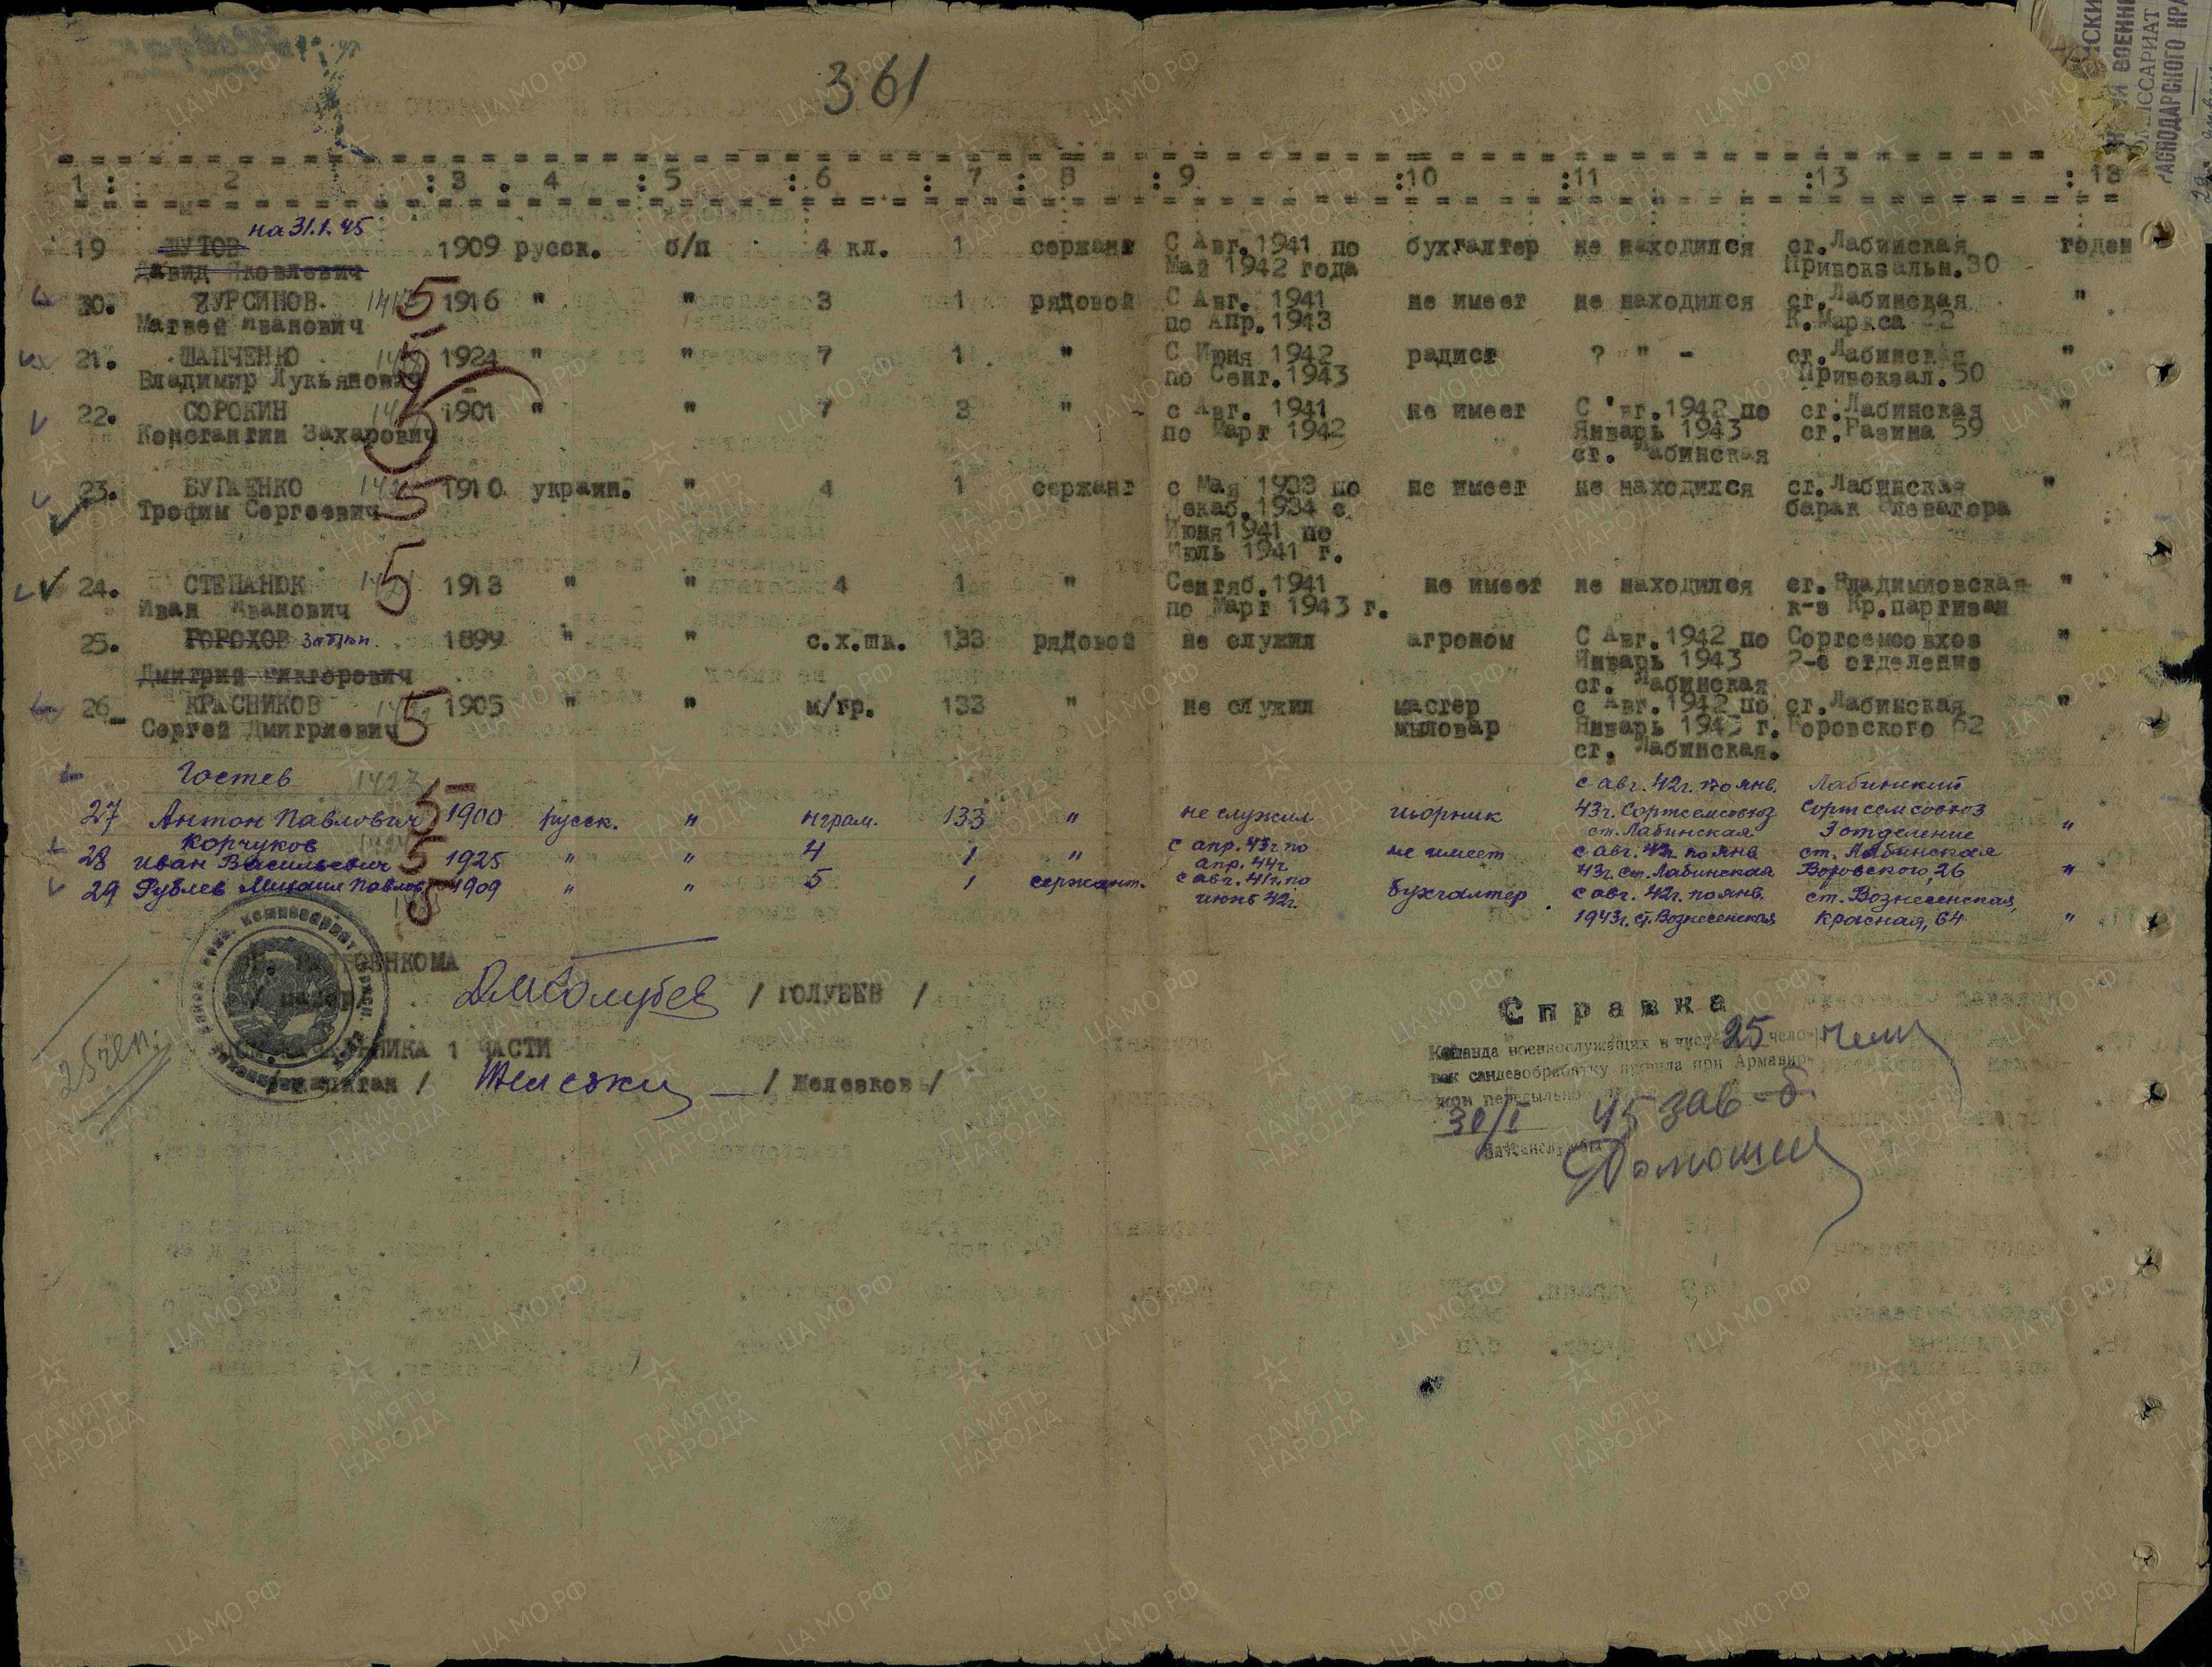 361
1 : 2 : 3 . 4 : 5 : 6 : 7 : 8 : 9 :10 :11 :13 : 13
на 31.1.45
19 ШУТОВ 1909 русск. б/п 4 кл. 1 сержант С Авг. 1941 по бухгалтер не находился ст. Лабинская годен
Давид Яковлевич Май 1942 года Привокзальн. 30
20. 5 1916 " " 3 1 рядовой С Авг. 1941 не имеет не находился ст. Лабинская "
Матвей Иванович по Апр. 1943 К. Маркса 22
21. ШАПЧЕНКО 5 1924 " " 7 1 " С Июня 1942 радист ? " - ст. Лабинская "
Владимир Лукьянович по Сент. 1943 Привокзал. 50
22. СОРОКИН 5 1901 " " 7 3 " с Авг. 1941 не имеет С Авг. 1942 по ст. Лабинская "
Константин Захарович по Март 1942 Январь 1943 ст. Разина 59
ст. Лабинская
23. БУГАЕНКО 5 1910 украин. " 4 1 сержант с Мая 1933 по не имеет не находился ст. Лабинская "
Трофим Сергеевич Декаб. 1934 с барак Элеватора
Июня 1941 по
Июль 1941 г.
24. СТЕПАНЮК 5 1913 " " 4 1 " Сентяб. 1941 не имеет не находился ст. Владимировская "
Иван Иванович по Март 1943 г. к-з Кр. партизан
25. ГОРОХОВ 1899 " " с.х.шк. 133 рядовой не служил агроном С Авг. 1942 по Сортсемсовхоз "
Дмитрий Викторович Январь 1943 2-е отделение
ст. Лабинская
26 КРАСНИКОВ 5 1905 " " м/гр. 133 " не служил мастер с Авг. 1942 по ст. Лабинская "
Сергей Дмитриевич мыловар Январь 1943 г. Воровского 62
ст. Лабинская.
Гостев 1423 с авг. 42г. по янв. Лабинский
27 Антон Павлович 5 1900 русск. " нграм. 133 " не служил шорник 43г. Сортсемсовхоз Сортсемсовхоз
ст. Лабинская 3 отделение "
Корчуков с апр. 43г. по
28 Иван Васильевич 5 1925 " " 4 1 " апр. 44г. не имеет с авг. 42г. по янв. ст. Лабинская
43г. ст. Лабинская Воровского, 26 "
29 Рублев Михаил Павлов. 5 1909 " " 5 1 сержант. с авг. 41г. по бухгалтер с авг. 42г. по янв. ст. Вознесенская,
июнь 42г. 1943г. ст. Вознесенская Красная, 64 "
ВОЕНКОМА
/ майор / / ГОЛУБЕВ /
25 чел.
НАЧАЛЬНИКА 1 ЧАСТИ
/ капитан / / Железков /
Справка
Команда военнослужащих в числе 25 чело- чел
век сандезобработку прошла при Армавир-
ском пересыльно
30/I 45 зав-